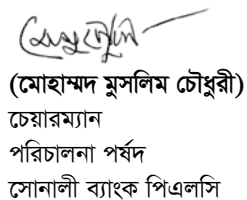 (মোহাম্মদ মুসলিম চৌধুরী)
চেয়ারম্যান
পরিচালনা পর্ষদ
সোনালী ব্যাংক পিএলসি